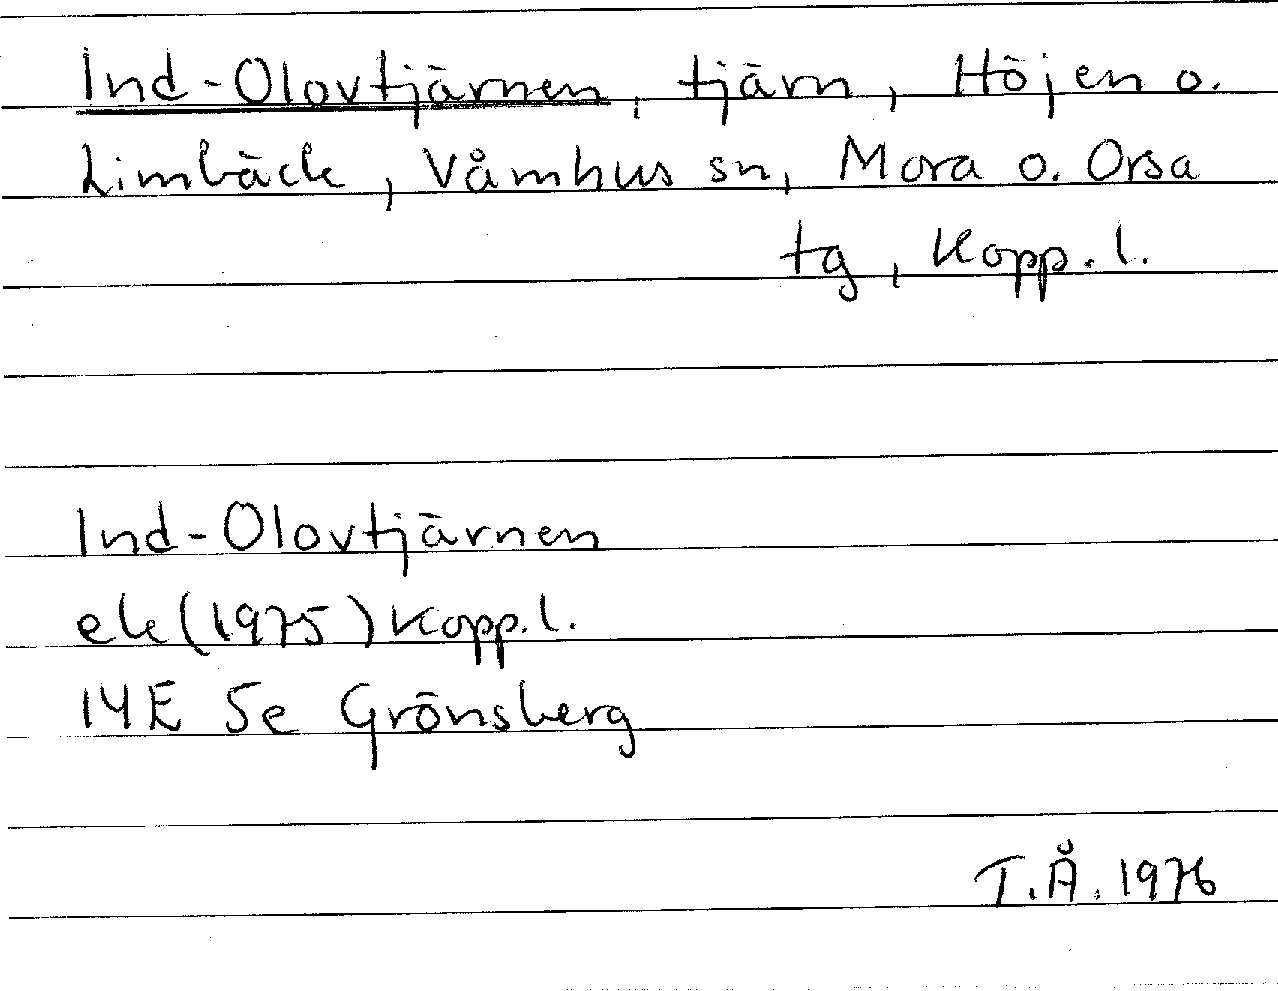 Ind-Olovtjärnen, tjärn, Höjen o.
Limbäck, Våmhus sn, Mora o. Orsa
tg, Kopp. l.
Ind-Olovtjärnen
ek (1975) Kopp. l.
14E 5e Grönsberg
T.Å. 1976